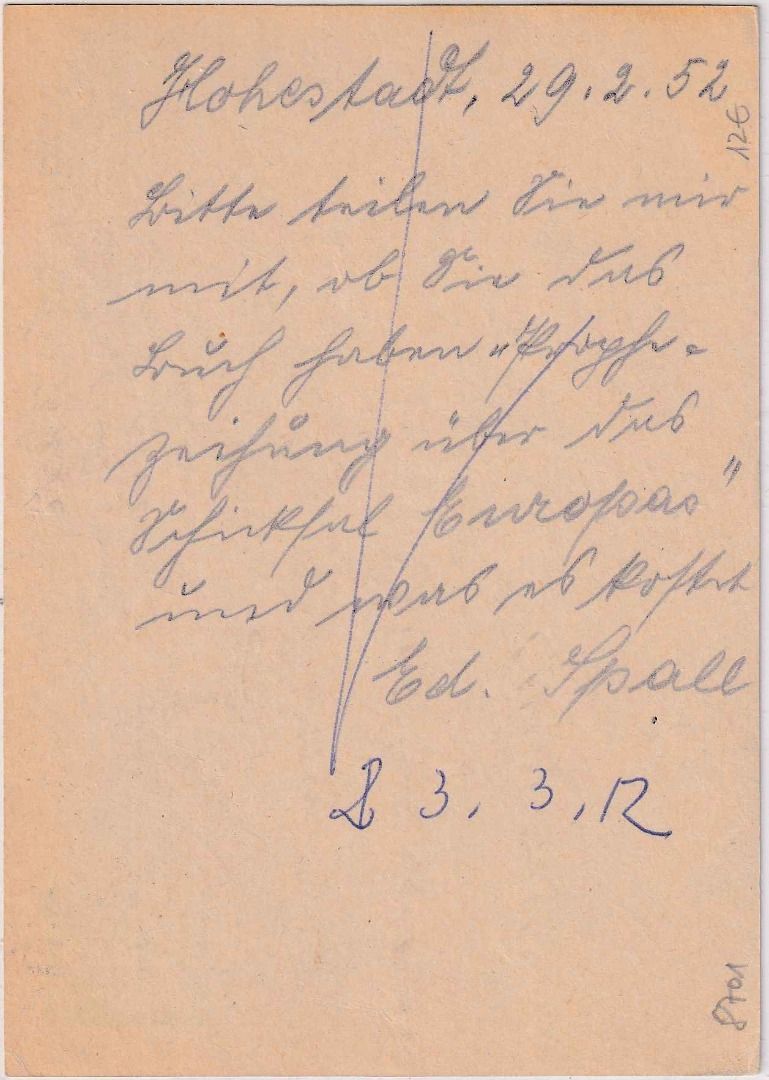 Hohestadt, 29.2.52
12€
Bitte teilen Sie mir
mit, ob Sie das
Buch haben „Prophe-
zeihung über das
Schicksal Europas"
und was es kostet
Ed. Spall
3. 3.
8701